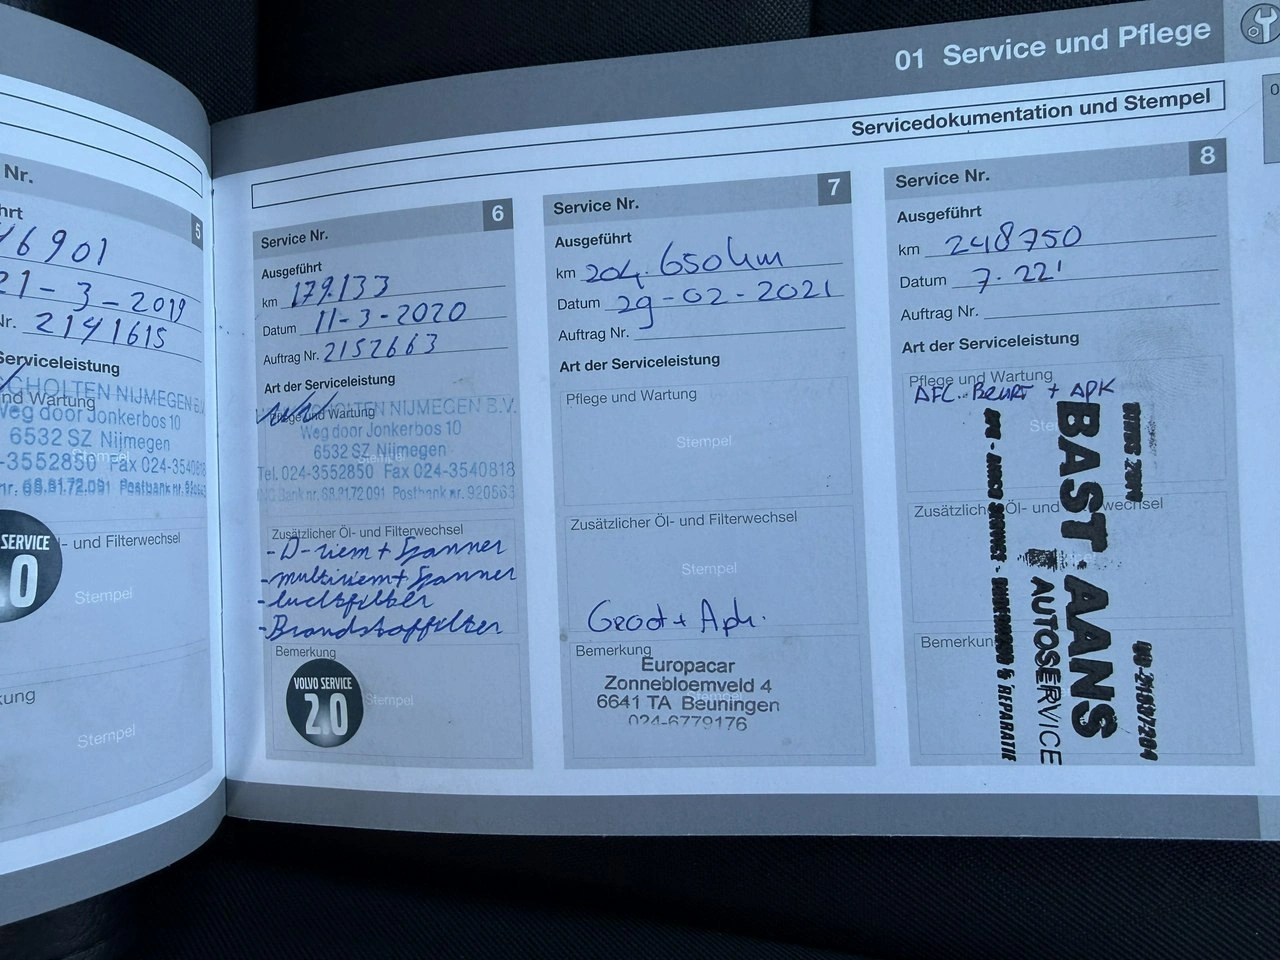 01 Service und Pflege
Servicedokumentation und Stempel
0
Nr.
5
hrt
46901
21-3-2019
Nr. 2141615
Serviceleistung
nd Wartung
SCHOLTEN NIJMEGEN B.V.
Weg door Jonkerbos 10
6532 SZ Nijmegen
-3552850 Fax 024-3540818
Stempel
SERVICE
.0
l- und Filterwechsel
Stempel
kung
Stempel
6
Service Nr.
Ausgeführt
km 179.133
Datum 11-3-2020
Auftrag Nr. 2152663
Art der Serviceleistung
Pflege und Wartung
SCHOLTEN NIJMEGEN B.V.
Weg door Jonkerbos 10
6532 SZ Nijmegen
Stempel
Tel. 024-3552850 Fax 024-3540818
Bank nr. 68.91.72.091 Postbank nr. 920563
Zusätzlicher Öl- und Filterwechsel
- D-riem + Spanner
- multiriem + Spanner
- luchtfilter
- Brandstoffilter
Bemerkung
VOLVO SERVICE
2.0
Stempel
7
Service Nr.
Ausgeführt
km 204.650 km
Datum 29-02-2021
Auftrag Nr.
Art der Serviceleistung
Pflege und Wartung
Stempel
Zusätzlicher Öl- und Filterwechsel
Stempel
Groot + Apk.
Bemerkung
Europacar
Zonnebloemveld 4
Stempel
6641 TA Beuningen
024-6779176
8
Service Nr.
Ausgeführt
km 248750
Datum 7-22'
Auftrag Nr.
Art der Serviceleistung
Pflege und Wartung
AFC. Beurt + APK
Zusätzlicher Öl- und wechsel
Bemerkung
BAST AANS
AUTOSERVICE
APK - AIRCO SERVICE - ONDERHOUD & REPARATIE